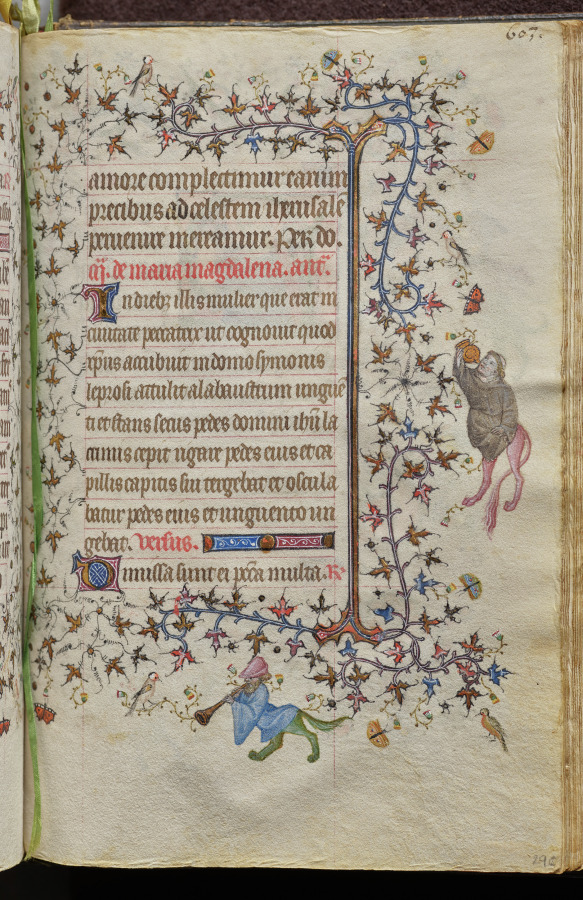 607.
amore complectimur earum
precibus ad celestem iherusale
peruenire mereamur. Per do.
de maria magdalena. ant.
In dieb; illis mulier que erat in
ciuitate peccatrix ut cognouit quod
xp̄us accubuit in domo symonis
leprosi attulit alabaustrum ungue
ti et stans secus pedes domini ihū la
crimis cepit rigare pedes eius et ca
pillis capitis sui tergebat et oscula
batur pedes eius et unguento un
gebat. Versus.
Dimissa sunt ei pctā multa. R